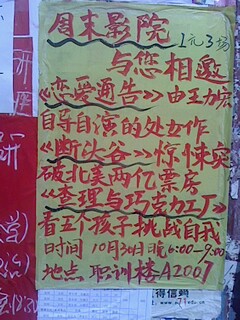 周末影院
1元3场
与您相邀
《恋爱通告》由王力宏
自导自演的处女作
《断头谷》惊悚突
破北美两亿票房
《查理与巧克力工厂》
看五个孩子挑战自我
时间 10月30日晚6:00-9:00
地点 职训楼A2007
得信鸽
研